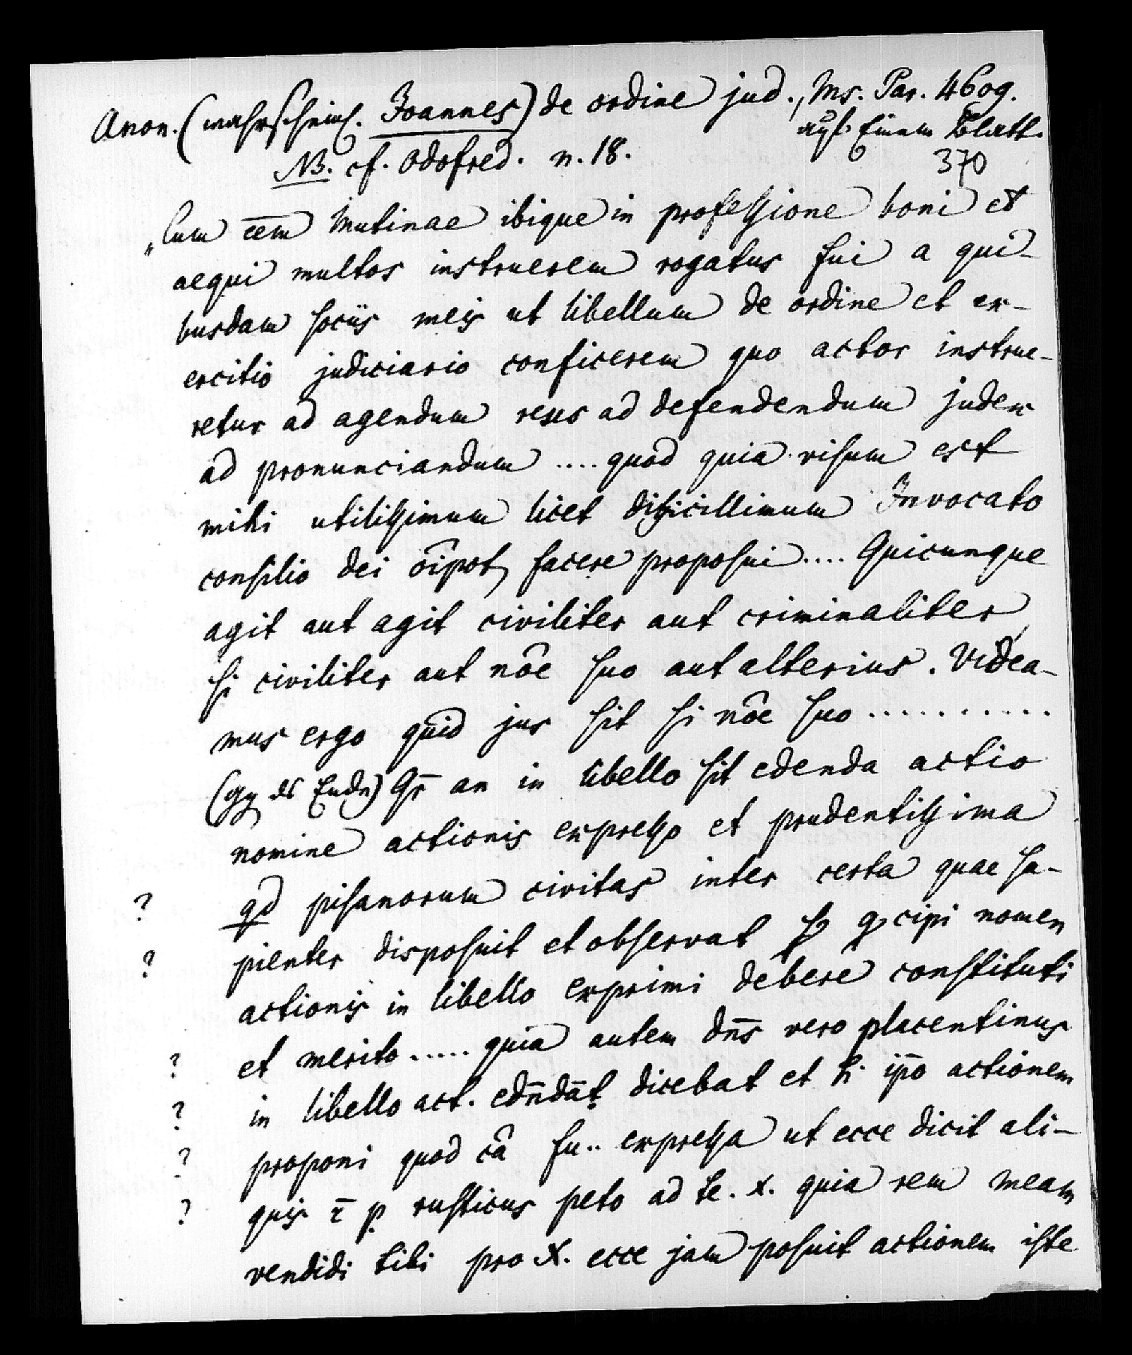 Anon. (wahrscheinl. Joannes) de ordine jud., Ms. Par. 4609.
auf Einem Blatt.
NB. cf. Odofred. n. 18.
370
„Cum eem Mutinae ibique in professione boni et
aequi multos instruerem rogatus fui a qui-
busdam sociis meis ut libellum de ordine et ex-
ercitio judiciario conficerem quo actor instrue-
retur ad agendum reus ad defendendum judex
ad pronunciandum .... quod quia visum est
mihi utilissimum licet difficillimum Invocato
consilio dei oîpot, facere proposui .... Quicunque
agit aut agit civiliter aut criminaliter
si civiliter aut nôe suo aut alterius. Videa-
mus ergo quid jus sit si nôe suo ..........
(gg ds Ende) Qr̄ an in libello sit edenda actio
nomine actionis expresso et prudentissima
? qd pisanorum civitas inter certa quae sa-
? pienter disposuit et observat cipi nomen
actionis in libello exprimi debere constituti
et merito ..... quia autem dn̄s vero placentinus
? in libello act. edn̄dāt dicebat et īpo actionem
? proponi quod câ fu.. expressa ut ecce dicit ali-
? quis rusticus peto ad te. x. quia rem meam
? vendidi tibi pro X. ecce jam posuit actionem iste